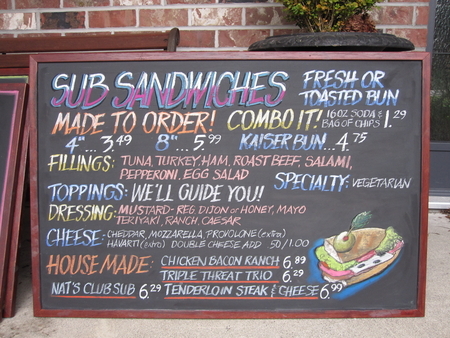 SUB SANDWICHES FRESH OR TOASTED BUN
MADE TO ORDER! COMBO IT! 16OZ SODA & BAG OF CHIPS 1.29
4"...3.49 8"...5.99 KAISER BUN...4.75
FILLINGS: TUNA, TURKEY, HAM, ROAST BEEF, SALAMI,
PEPPERONI, EGG SALAD
SPECIALTY: VEGETARIAN
TOPPINGS: WE'LL GUIDE YOU!
DRESSING: MUSTARD-REG. DIJON or HONEY, MAYO
TERIYAKI, RANCH, CAESAR
CHEESE: CHEDDAR, MOZZARELLA, PROVOLONE (extra)
HAVARTI (extra) DOUBLE CHEESE ADD .50/1.00
HOUSE MADE: CHICKEN BACON RANCH 6.89
TRIPLE THREAT TRIO 6.29
NAT'S CLUB SUB 6.29 TENDERLOIN STEAK & CHEESE 6.99